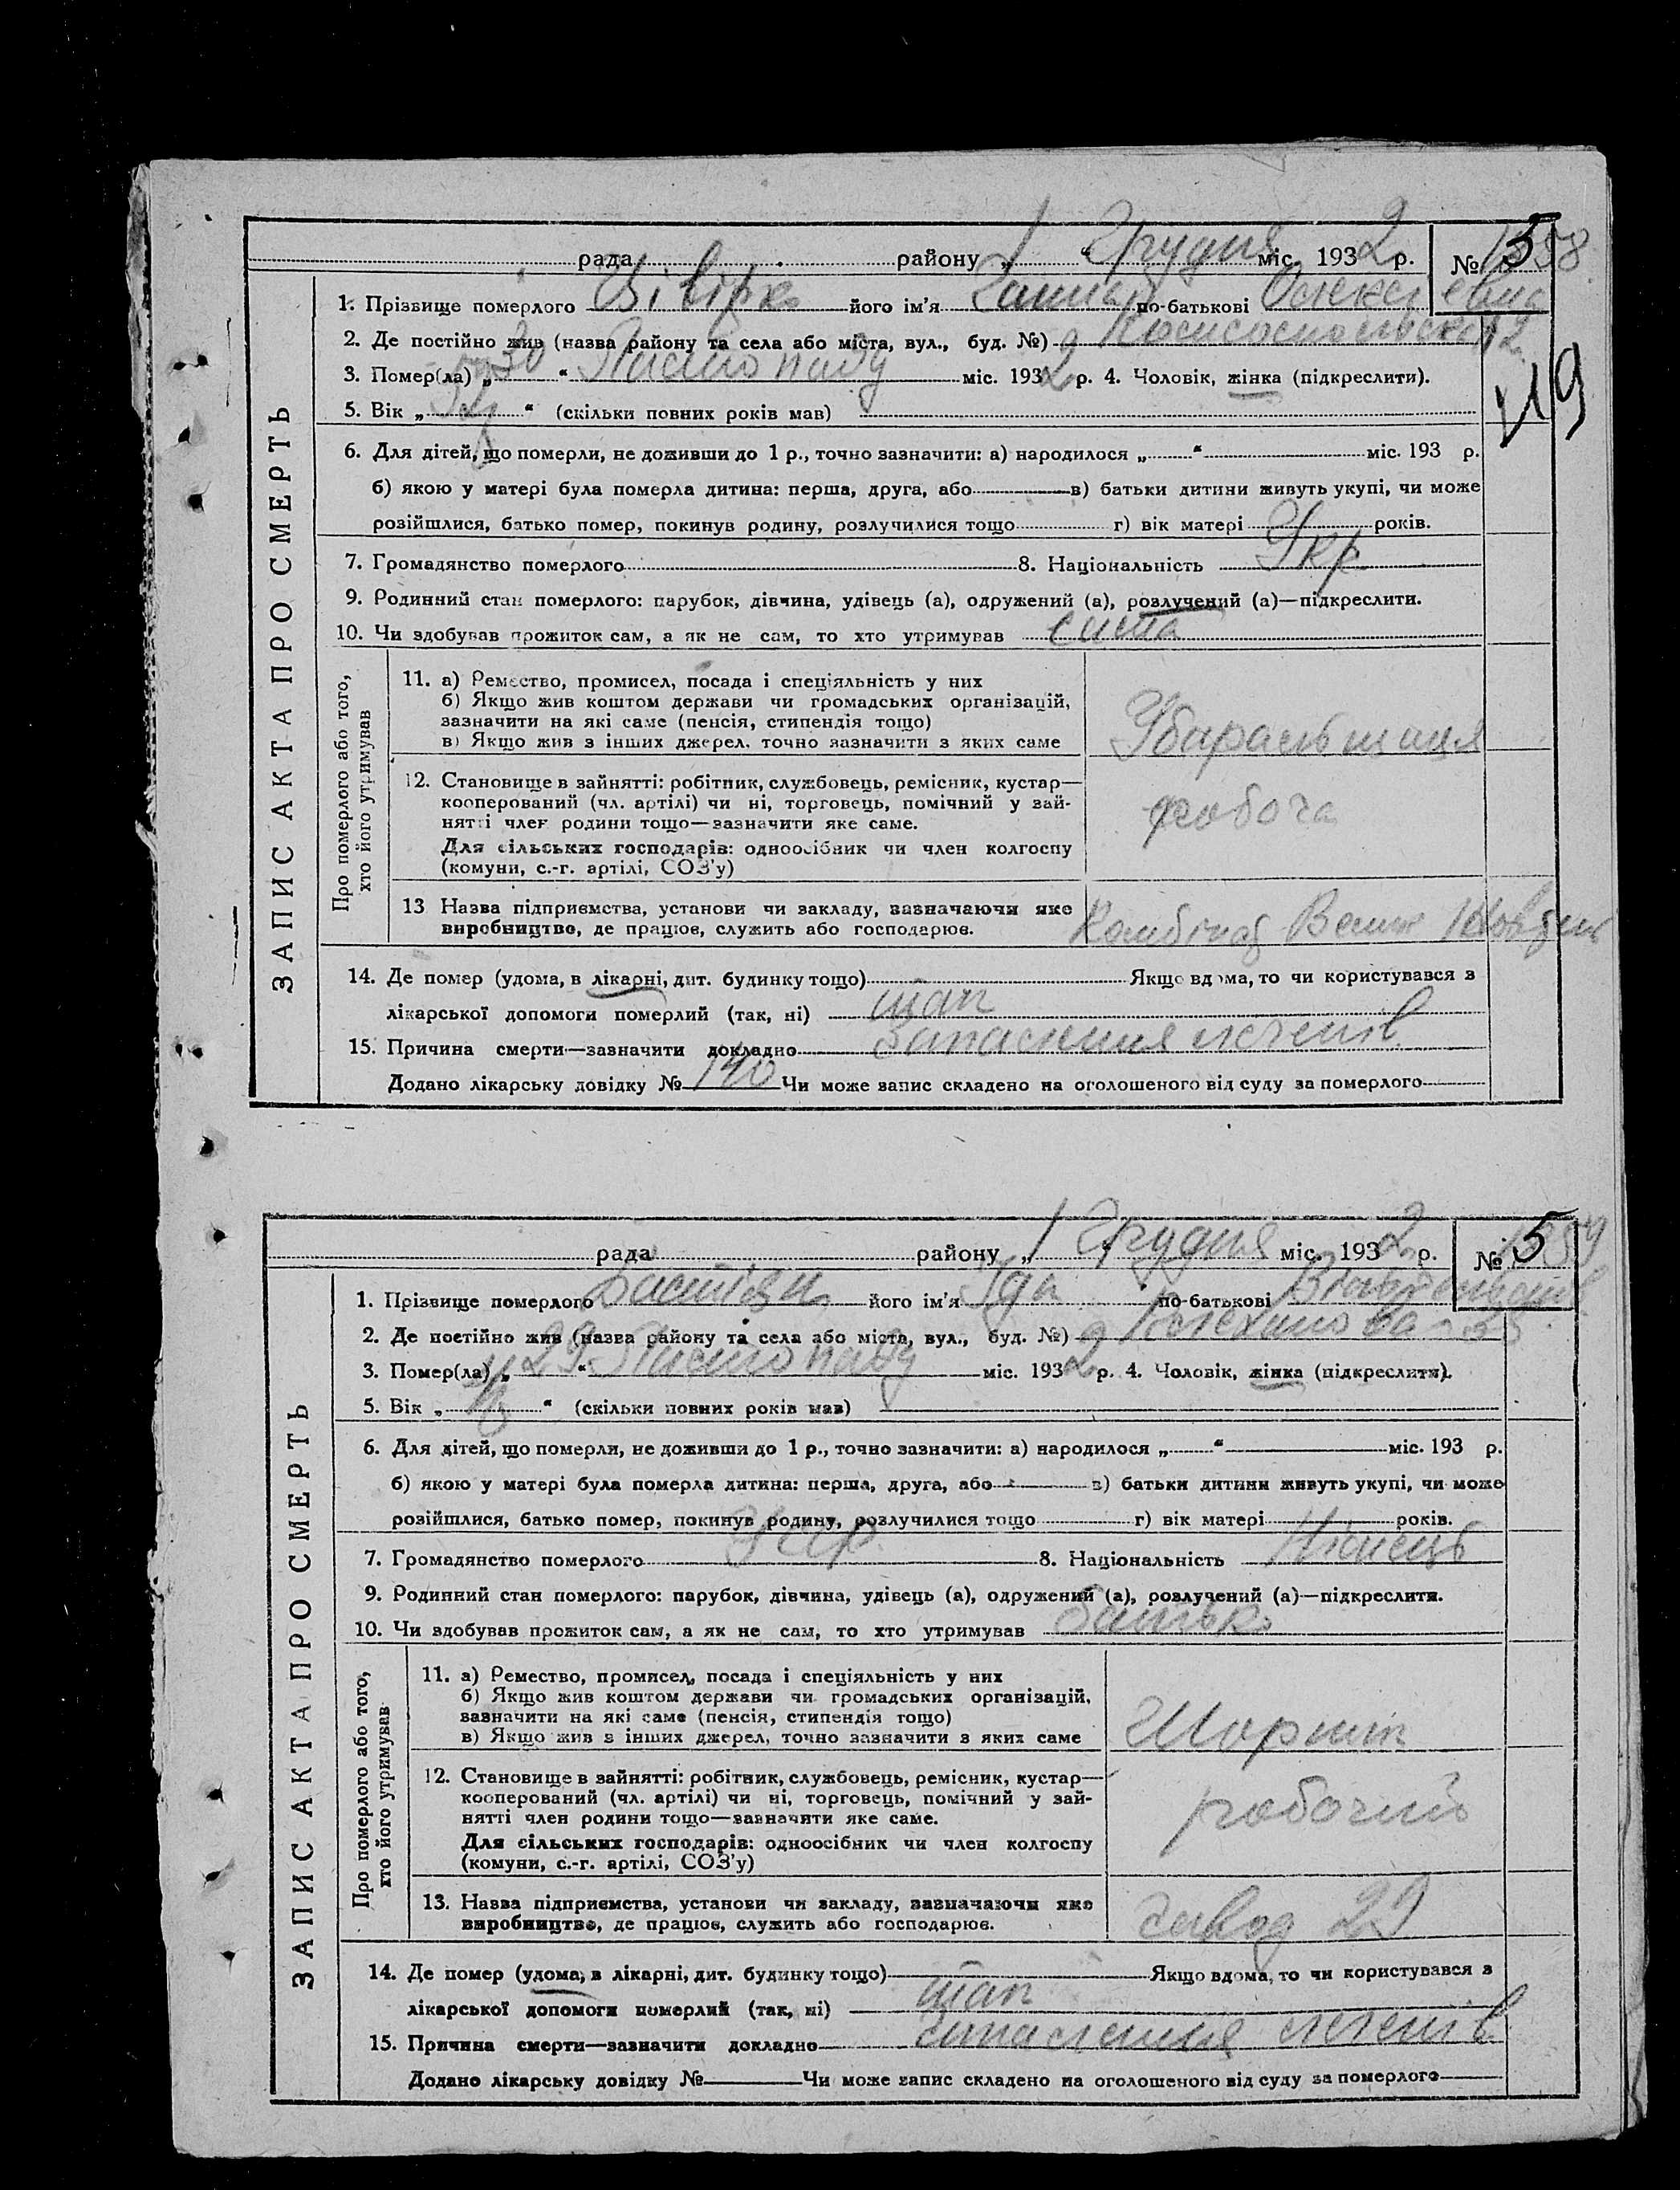 рада району „ 1 “ Грудня міс. 1932 р. № 1558 5
ЗАПИС АКТА ПРО СМЕРТЬ
1. Прізвище померлого його ім'я по-батькові
2. Де постійно жив (назва району та села або міста, вул., буд. №) Комсомольська 12
3. Помер(ла) „ 30 “ Листопаду міс. 1932 р. 4. Чоловік, жінка (підкреслити).
5. Вік „ “ (скільки повних років мав)
119
6. Для дітей, що померли, не доживши до 1 р., точно зазначити: а) народилося „ “ міс. 193 р.
б) якою у матері була померла дитина: перша, друга, або в) батьки дитини живуть укупі, чи може
розійшлися, батько помер, покинув родину, розлучилися тощо г) вік матері років.
7. Громадянство померлого 8. Національність Укр
9. Родинний стан померлого: парубок, дівчина, удівець (а), одружений (а), розлучений (а)—підкреслити.
10. Чи здобував прожиток сам, а як не сам, то хто утримував
Про померлого або того, хто його утримував
11. а) Ремество, промисел, посада і спеціяльність у них
б) Якщо жив коштом держави чи громадських організацій,
зазначити на які саме (пенсія, стипендія тощо)
в) Якщо жив з інших джерел, точно зазначити з яких саме
Убиральниця
12. Становище в зайнятті: робітник, службовець, ремісник, кустар—
кооперований (чл. артілі) чи ні, торговець, помічний у зай-
нятті член родини тощо—зазначити яке саме.
Для сільських господарів: одноосібник чи член колгоспу
(комуни, с.-г. артілі, СОЗ'у)
робоча
13 Назва підприємства, установи чи закладу, зазначаючи яке
виробництво, де працює, служить або господарює.
Комбінат
14. Де помер (удома, в лікарні, дит. будинку тощо) Якщо вдома, то чи користувався з
лікарської допомоги померлий (так, ні) так
15. Причина смерти—зазначити докладно Запалення легенів
Додано лікарську довідку № 140 Чи може запис складено на оголошеного від суду за померлого
рада району „ 1 “ Грудня міс. 1932 р. № 1559 5
ЗАПИС АКТА ПРО СМЕРТЬ
1. Прізвище померлого його ім'я Іда по-батькові
2. Де постійно жив (назва району та села або міста, вул., буд. №)
3. Помер(ла) „ 29 “ Листопаду міс. 1932 р. 4. Чоловік, жінка (підкреслити).
5. Вік „ “ (скільки повних років мав)
6. Для дітей, що померли, не доживши до 1 р., точно зазначити: а) народилося „ “ міс. 193 р.
б) якою у матері була померла дитина: перша, друга, або в) батьки дитини живуть укупі, чи може
розійшлися, батько помер, покинув родину, розлучилися тощо г) вік матері років.
7. Громадянство померлого 8. Національність Німець
9. Родинний стан померлого: парубок, дівчина, удівець (а), одружений (а), розлучений (а)—підкреслити.
10. Чи здобував прожиток сам, а як не сам, то хто утримував батько
Про померлого або того, хто його утримував
11. а) Ремество, промисел, посада і спеціяльність у них
б) Якщо жив коштом держави чи громадських організацій,
зазначити на які саме (пенсія, стипендія тощо)
в) Якщо жив з інших джерел, точно зазначити з яких саме
Шорник
12. Становище в зайнятті: робітник, службовець, ремісник, кустар—
кооперований (чл. артілі) чи ні, торговець, помічний у зай-
нятті член родини тощо—зазначити яке саме.
Для сільських господарів: одноосібник чи член колгоспу
(комуни, с.-г. артілі, СОЗ'у)
робочий
13. Назва підприємства, установи чи закладу, зазначаючи яке
виробництво, де працює, служить або господарює.
завод 29
14. Де помер (удома, в лікарні, дит. будинку тощо) Якщо вдома, то чи користувався з
лікарської допомоги померлий (так, ні) так
15. Причина смерти—зазначити докладно запалення легенів
Додано лікарську довідку № Чи може запис складено на оголошеного від суду за померлого